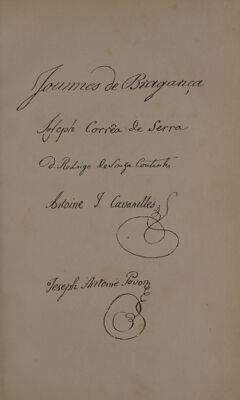 Joumes de Bragança
Joseph Corrêa de Serra
D. Rodrigo de Souza Coutinho
Antoine J. Cavanilles
Joseph Antoine Pavon